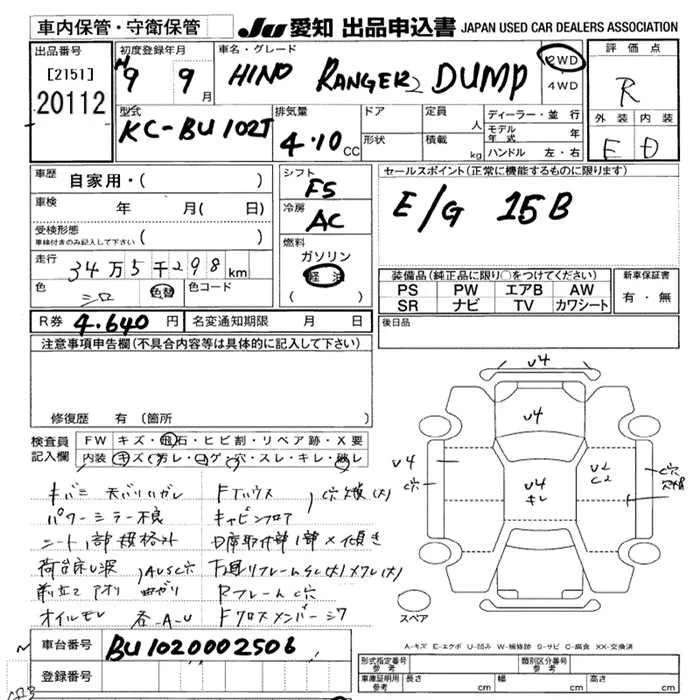 車内保管・守衛保管
JU 愛知 出品申込書 JAPAN USED CAR DEALERS ASSOCIATION
出品番号
[2151]
20112
初度登録年月
H9 9月
車名・グレード
HINO RANGER2 DUMP
2WD
4WD
評価点
R
外装 内装
E D
型式
KC-BU102T
排気量
4.10 CC
ドア
形状
定員 人
積載 kg
ディーラー・並行
モデル年式 年
ハンドル 左・右
車歴 自家用・( )
車検 年 月( 日)
受検形態
車検付きのみ記入して下さい ( )
走行 34万5千298km
色 シロ 色替 色コード
シフト
F5
冷房
AC
燃料
ガソリン
軽油
( )
セールスポイント(正常に機能するものに限ります)
E/G 15B
装備品(純正品に限り○をつけてください)
PS PW エアB AW
SR ナビ TV カワシート
新車保証書
有・無
R券 4.640円 名変通知期限 月 日
後日品
注意事項申告欄(不具合内容等は具体的に記入して下さい)
修復歴 有(箇所
検査員記入欄
FW キズ・飛石・ヒビ割・リペア跡・X要
内装 キズ・汚レ・コゲ・穴・スレ・キレ・破レ
キバミ
パワーミラー不良
シート1部規格外
荷台床凹波
オイルモレ 各A-U
キャビンフロア
Rフレーム C穴
Fクロスメンバー
V4
V4
V4
V4
キレ
U2
C2
C穴
C穴
スペア
A-キズ E-エクボ U-凹み W-補修跡 S-サビ C-腐食 XX-交換済
車台番号 BU1020002506
登録番号
形式指定番号
参考
類別区分番号
参考
車庫証明用
参考
長さ cm 幅 cm 高さ cm